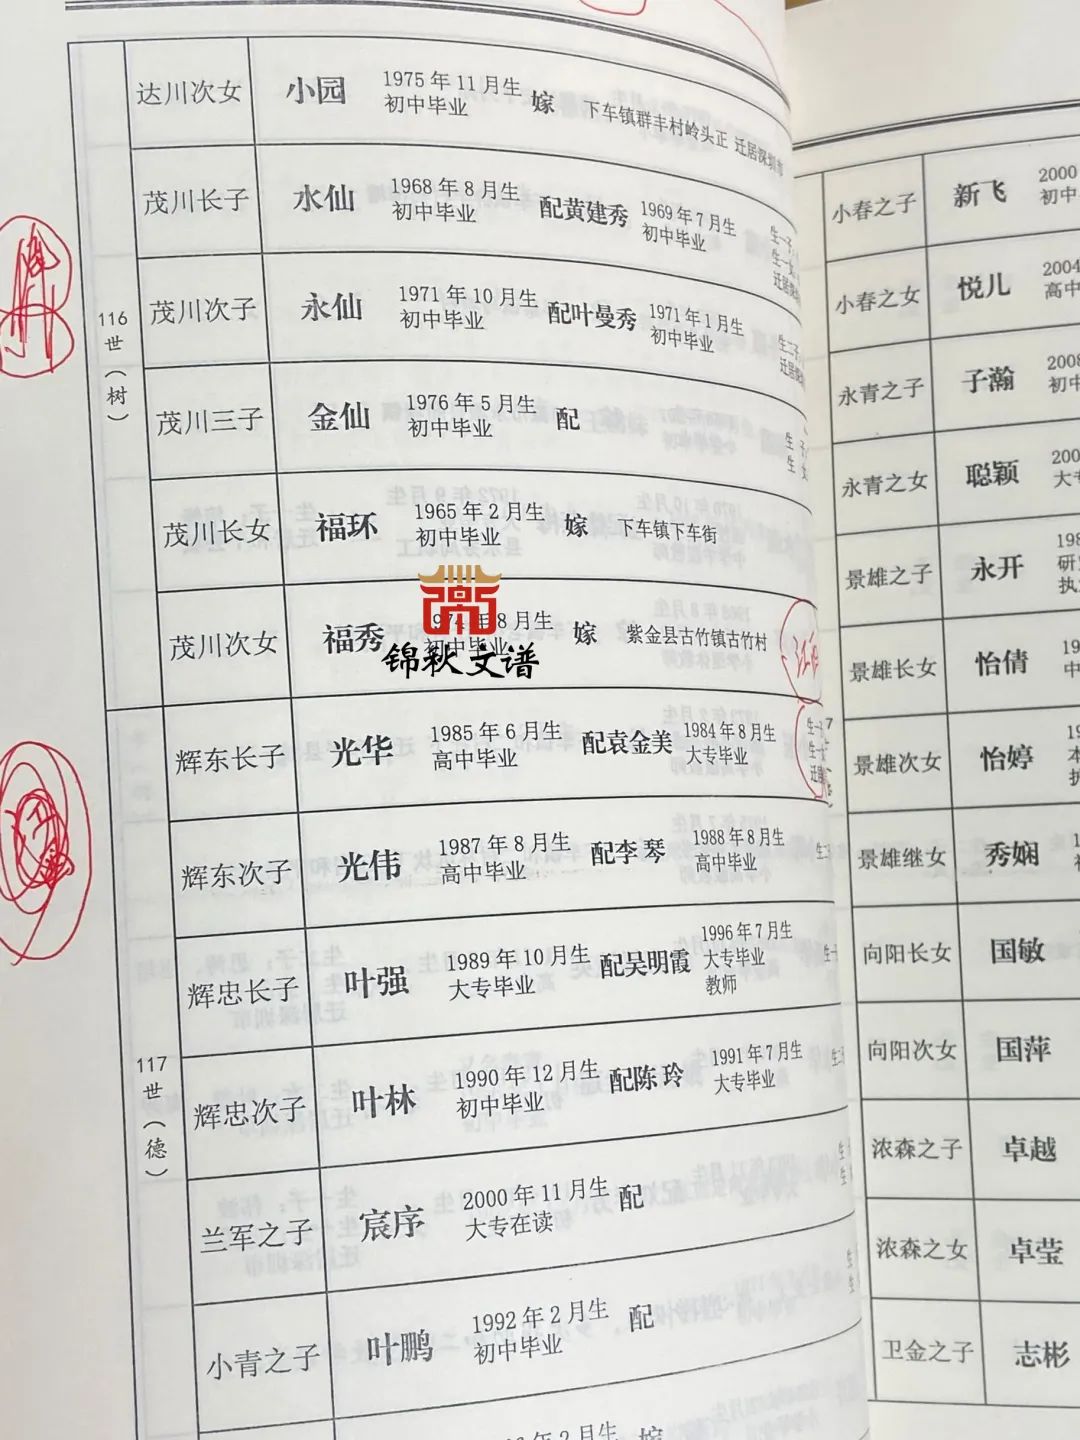 116
世
（树）
达川次女 小园 1975年11月生 嫁 下车镇群丰村岭头正 迁居深圳市
初中毕业
茂川长子 水仙 1968年8月生 配黄建秀 1969年7月生 生一子
初中毕业 初中毕业 生一女
茂川次子 永仙 1971年10月生 配叶曼秀 1971年1月生 生二子
初中毕业 初中毕业
茂川三子 金仙 1976年5月生 配
初中毕业
茂川长女 福环 1965年2月生 嫁 下车镇下车街
初中毕业
茂川次女 福秀 1974年8月生 嫁 紫金县古竹镇古竹村
初中毕业
锦秋文谱
117
世
（德）
辉东长子 光华 1985年6月生 配袁金美 1984年8月生
高中毕业 大专毕业
辉东次子 光伟 1987年8月生 配李琴 1988年8月生
高中毕业 高中毕业
辉忠长子 叶强 1989年10月生 配吴明霞 1996年7月生
大专毕业 大专毕业
教师
辉忠次子 叶林 1990年12月生 配陈玲 1991年7月生
初中毕业 大专毕业
兰军之子 宸序 2000年11月生 配
大专在读
小青之子 叶鹏 1992年2月生 配
初中毕业
年2月生 嫁
小春之子 新飞 2000
初中
小春之女 悦儿 2004
高中
永青之子 子瀚 2008
初中
永青之女 聪颖 200
大专
景雄之子 永开 198
研究
执
景雄长女 怡倩 19
中
景雄次女 怡婷 19
本
护
景雄继女 秀娴
初
向阳长女 国敏
向阳次女 国萍
浓森之子 卓越
浓森之女 卓莹
卫金之子 志彬